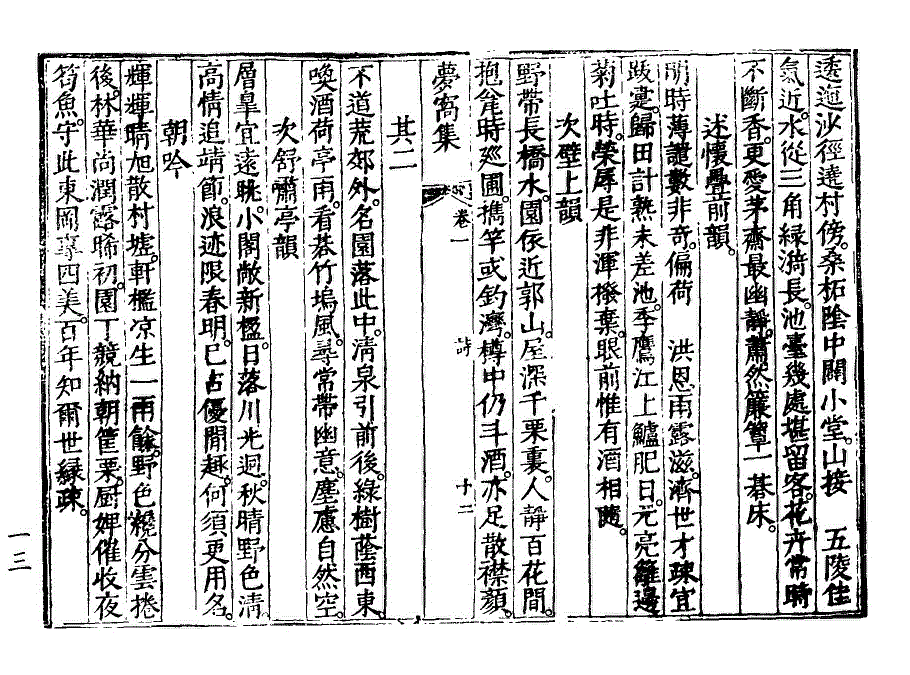 透迤沙徑達村傍。桑柘陰中闢小堂。山接　五陵佳
氣近。水從三角緑漪長。池臺幾處堪留客。花卉常時
不斷香。更愛茅齋最幽靜。蕭然簾簟一碁床。
述懷疊前韻。
明時薄譴數非奇。偏荷　洪恩雨露滋。濟世才疎宜
跋疐。歸田計熟未差池。季鷹江上鱸肥日。元亮籬邊
菊吐時。榮辱是非渾撥棄。眼前惟有酒相隨。
次壁上韻
野帶長橋水。園依近郭山。屋深千栗裏。人靜百花間。
抱瓮時廵圃。携竿或釣灣。樽中仍斗酒。亦足散襟顔。
夢窩集　卷一　詩　十二
其二
不道荒郊外。名園落此中。清泉引前後。綠樹蔭西東。
喚酒荷亭雨。看碁竹塢風。尋常帶幽意。塵慮自然空。
次舒嘯亭韻
層皐宜遠眺。小閣敞新楹。日落川光迥。秋晴野色清。
高情追靖節。浪迹限春明。已占優閒趣。何須更用名。
朝吟
輝輝晴旭散村墟。軒檻凉生一雨餘。野色纔分雲捲
後。林華尚潤露晞初。園丁競納朝筐栗。厨婢催收夜
笱魚。守此東岡專四美。百年知爾世緑疎。
一三